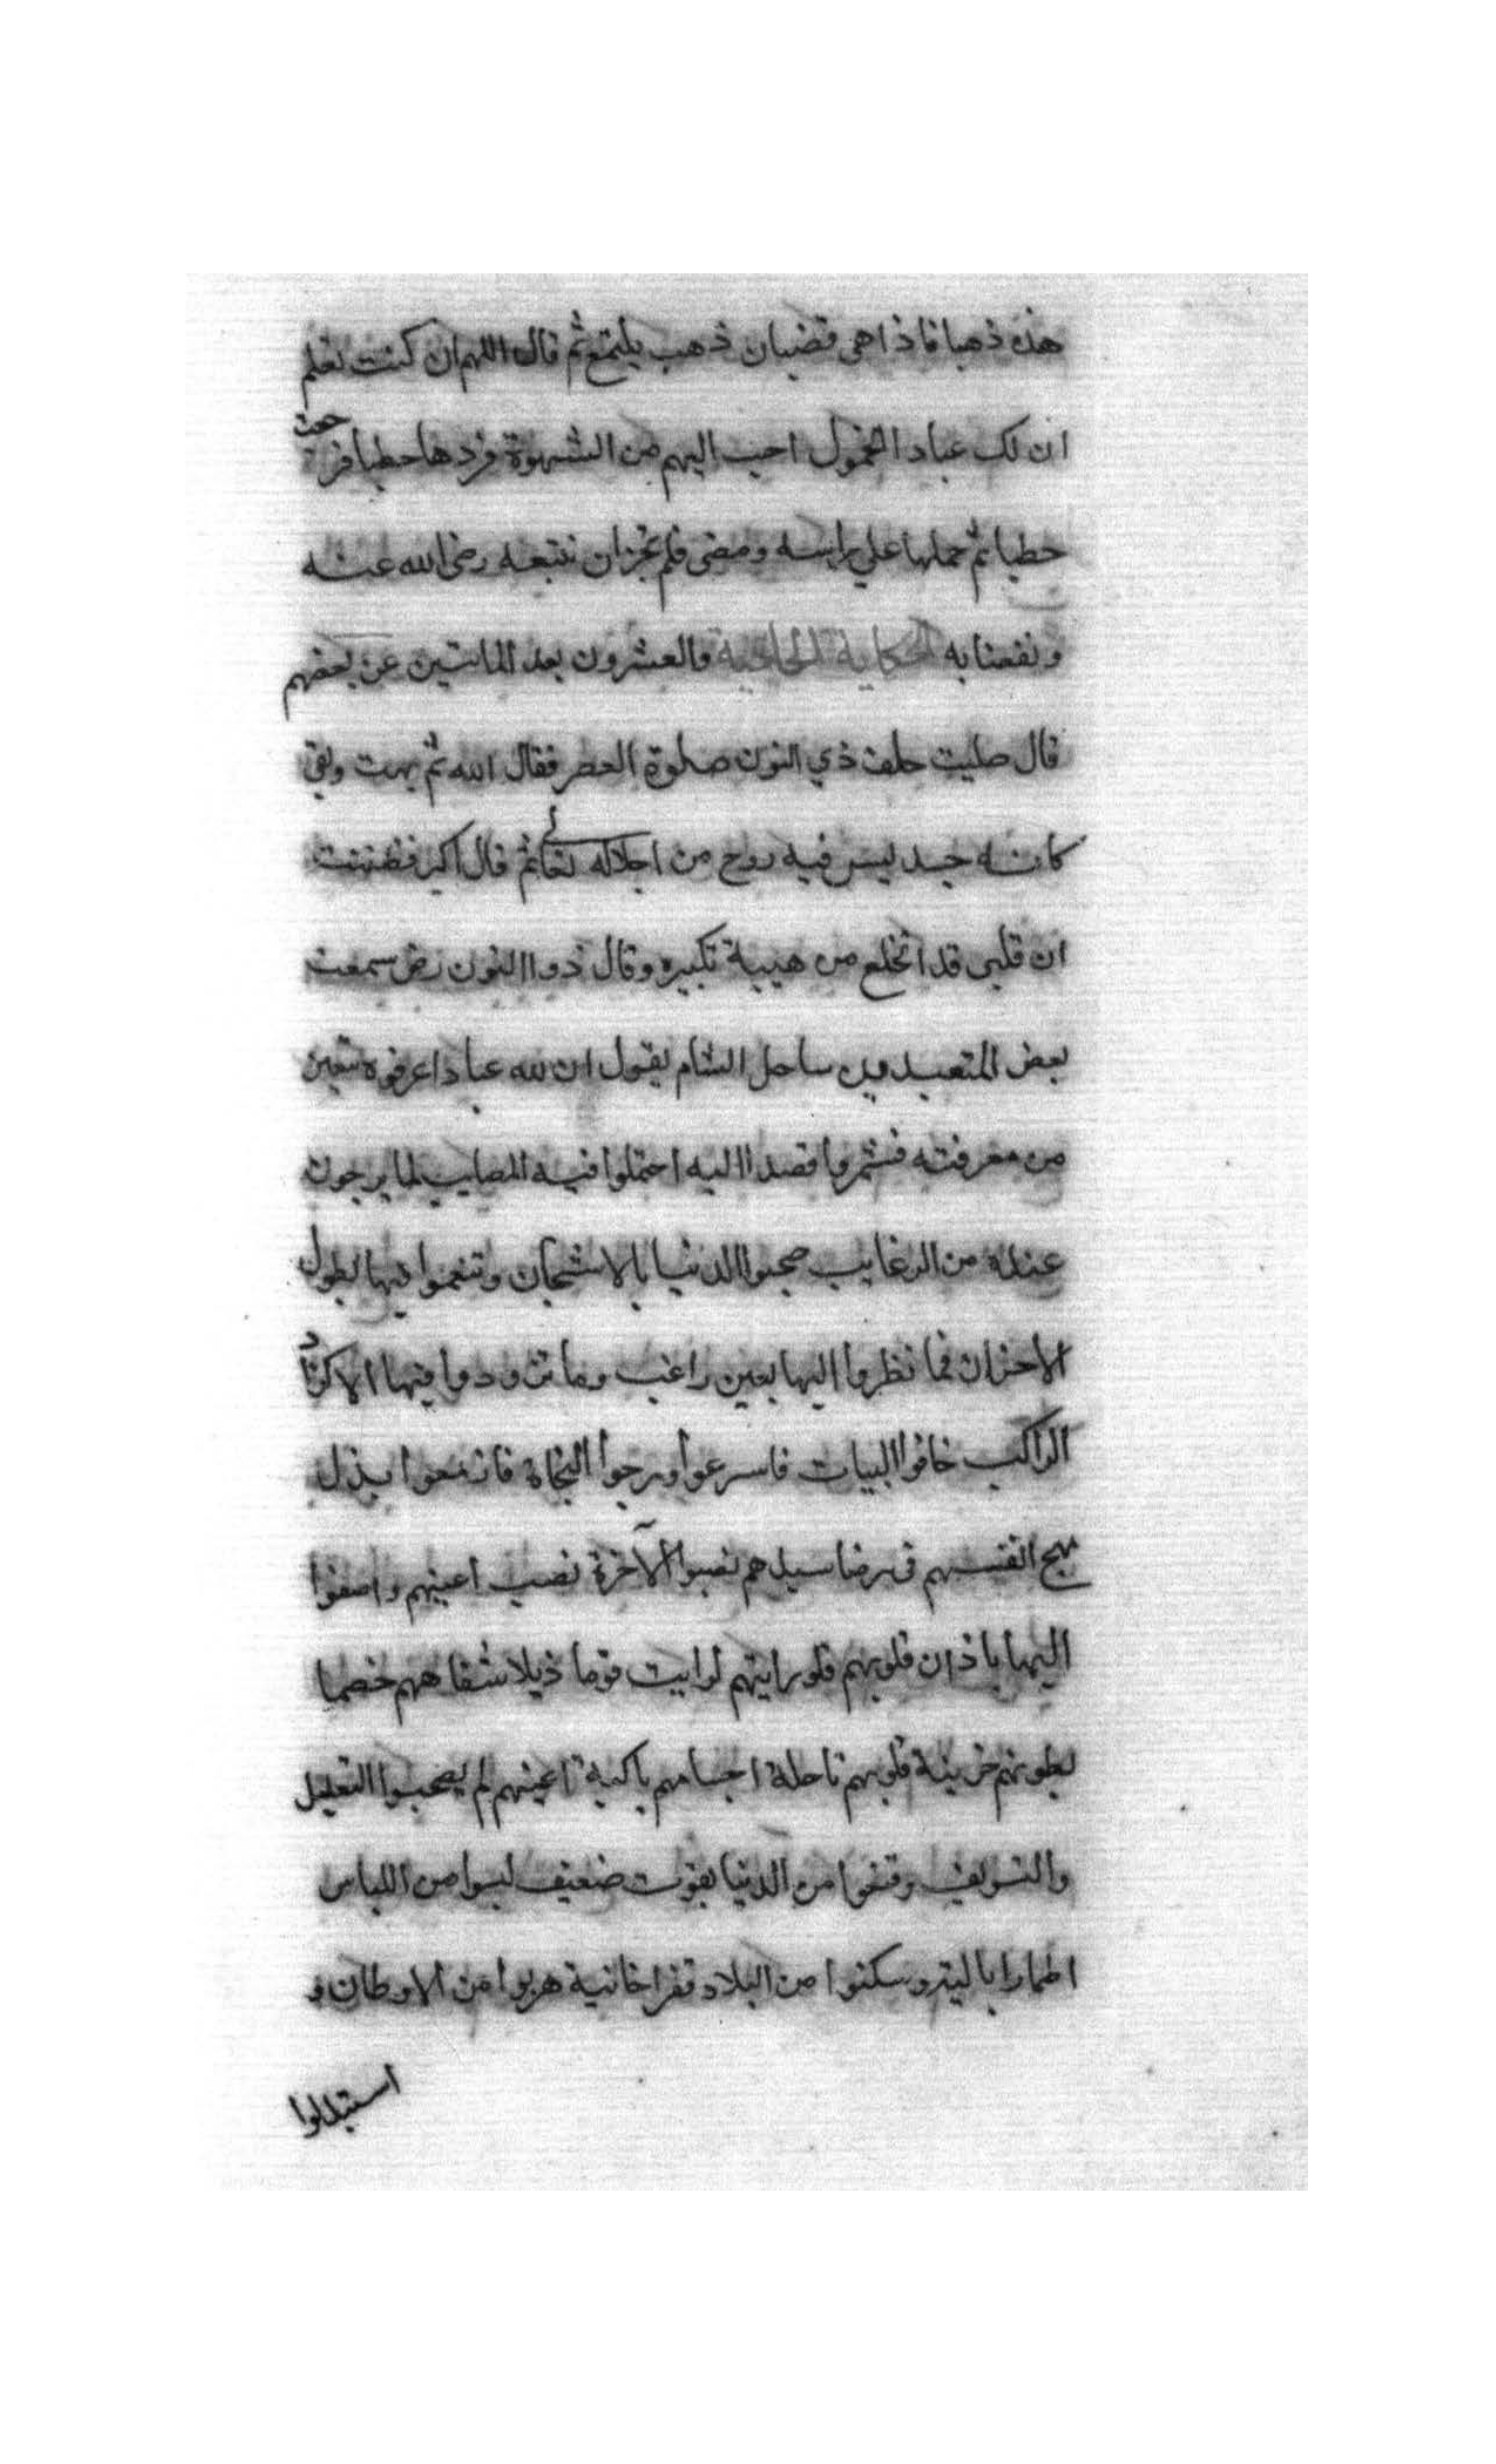 هذه ذهبا فاذا هى قضبان ذهب يلتمع ثم قال اللهم ان كنت تعلم
ان لك عبادا الخمول احب اليهم من الشهوة فردها حطبا فرجعت
حطبا ثم حملها على راسه ومضى فلم نجز ان نتبعه رضى الله عنه
ونفعنا به الحكاية الحادية والعشرون بعد الماتين عن بعضهم
قال صليت خلف ذي النون صلوة العصر فقال الله ثم بهت وبقى
كانه جسد ليس فيه روح من اجلاله تعالى ثم قال اكبر فظننت
ان قلبى قد انخلع من هيبة تكبيره وقال ذوا النون رض سمعت
بعض المتعبدين ساحل الشام يقول ان لله عبادا عرفوه بيقين
من معرفته فشمروا قصدا اليه احتملوا فيه المصايب لما يرجون
عنده من الرغايب صحبوا الدنيا بالاشجان وتنعموا فيها بطول
الاحزان فما نظروا اليها بعين راغب وما تزودوا منها الا كزاد
الراكب خافوا البيات فاسرعوا ورجوا النجاة فازمعوا بذل
مهج انفسهم فى رضا سيدهم نصبوا الآخرة نصب اعينهم واصغوا
اليها باذان قلوبهم فلو رايتهم لرايت قوما ذبلا شفاههم خصما
بطونهم حزينة قلوبهم ناحلة اجسامهم باكية اعينهم لم يصحبوا التعليل
والتسويف وقنعوا من الدنيا بقوت ضعيف لبسوا من اللباس
اطمارا بالية وسكنوا من البلاد قفرا خانية هربوا من الاوطان و
استبدلوا